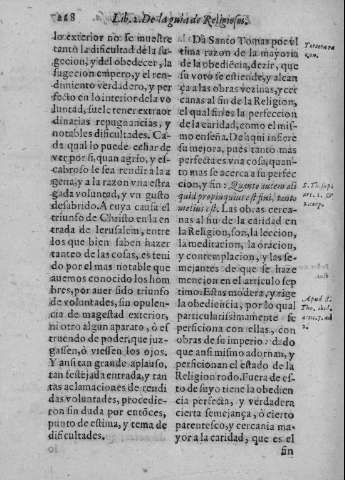 228 Lib. 2. De la guia de Religiosos.
lo exterior no se muestre
tanto la dificultad de la su
gecion, y del obedecer, la
sugecion empero, y el ren-
dimiento verdadero, y per
fecto en lo interior de la vo
luntad, suele tener extraor
dinarias repugnancias, y
notables dificultades. Ca-
da qual lo puede echar de
ver por si, quan agrio, y es-
cabroso le sea rendir la a a
gena, y a la razon vna estra
gada voluntad, y vn gusto
desabrido. A cuya causa el
triunfo de Christo en la en
trada de Ierusalem, entre
los que bien saben hazer
tanteo de las cosas, es teni
do por el mas notable que
auemos conocido los hom
bres, por auer sido triunfo
de voluntades, sin opulen-
cia de magestad exterior,
ni otro algun aparato, ò es
truendo de poder, que juz-
gassen, ò viessen los ojos.
Y ansi tan grande aplauso,
tan festejada entrada, y tan
tas aclamaciones de rendi
das voluntades, procedie-
ron sin duda por entōces,
punto de estima, y tema de
dificultades.
Da Santo Tomas por vl
tima razon de la mayoria
de la obediēcia, dezir, que
su voto se estiende, y alcan
ça a las obras vezinas, y cer
canas al fin de la Religion,
el qual fin es la perfeccion
de la caridad, como el mis-
mo enseña. De aqui infiere
su mejora, pues tanto mas
perfecta es vna cosa, quan-
to mas se acerca a su perfec
cion, y fin: Quanto autem ali
quid propinquius est fini, tanto
melius est. Las obras cerca-
nas al fin de la caridad en
la Religion, son, la leccion,
la meditacion, la oracion,
y contemplacion, y las se-
mejantes de que se haze
mencion en el articulo sep
timo. Estas modera, y rige
la obediēcia, por lo qual
particularissimamente se
perficiona con ellas, con
obras de su imperio: dado
que ansi mismo adornan, y
perficionan el estado de la
Religion todo. Fuera de es-
to de suyo tiene la obedien
cia perfecta, y verdadera
cierta semejança, ò cierto
parentesco, y cercania ma-
yor a la caridad, que es el
fin
Tercera ra
zon.
S. Th. sup.
Apud S.